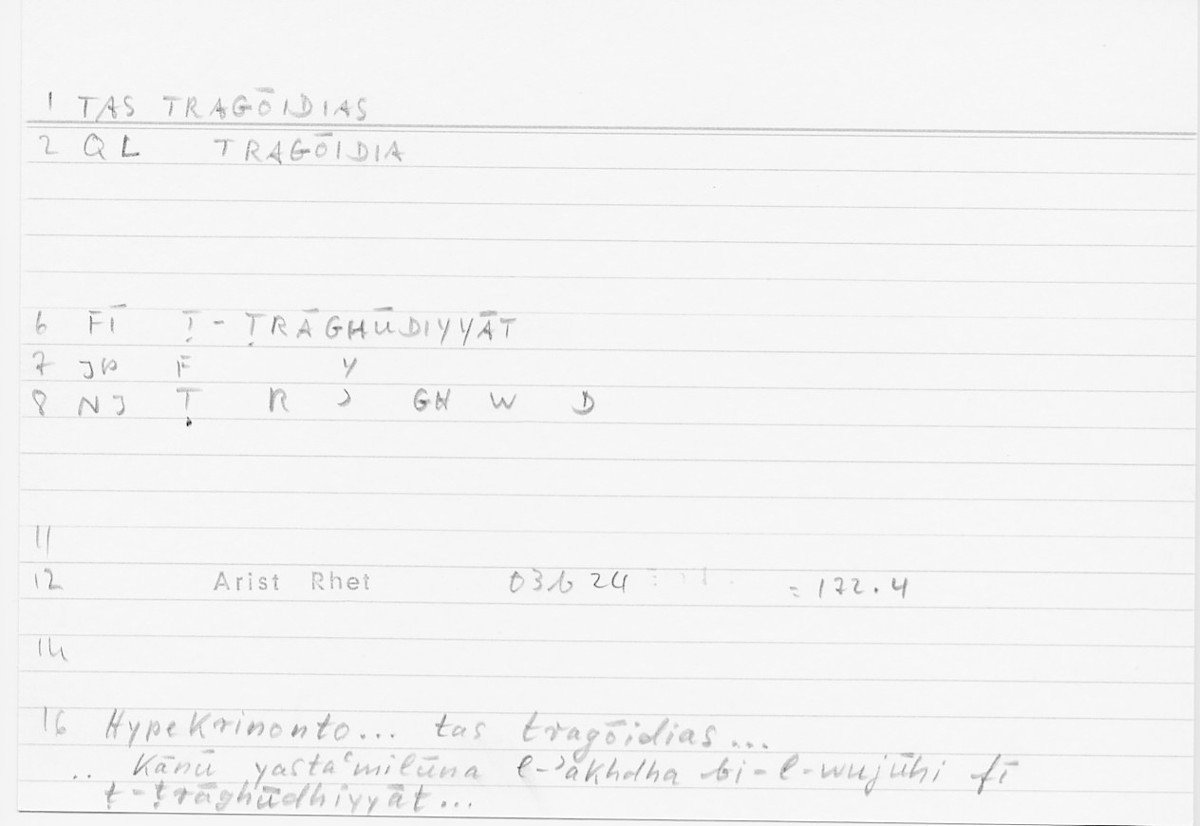 1 TAS TRAGŌIDIAS
2 QL TRAGŌIDIA
6 FĪ Ṭ-ṬRĀGHŪDIYYĀT
7 JP F Y
8 NJ Ṭ R ʾ GH W D
11
12 Arist Rhet 03b 24 = 172.4
14
16 Hypekrinonto... tas tragōidias...
.. Kānū yastaʿmilūna l-ʾakhdha bi-l-wujūhi fī
ṭ-ṭrāghūdhiyyāt...